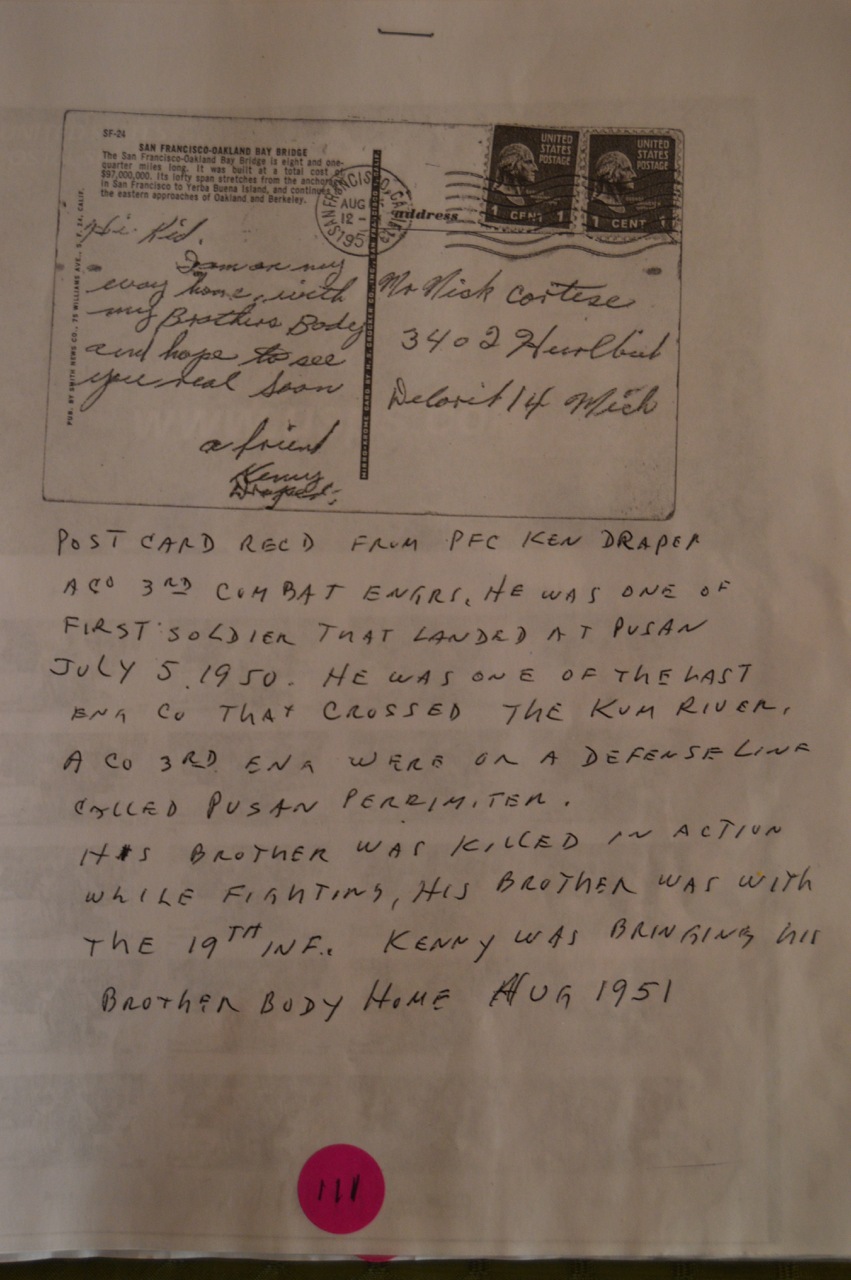 SF-24
SAN FRANCISCO-OAKLAND BAY BRIDGE
The San Francisco-Oakland Bay Bridge is eight and one-
quarter miles long. It was built at a total cost of
$97,000,000. Its lofty span stretches from the anchorage
in San Francisco to Yerba Buena Island, and continues
the eastern approaches of Oakland and Berkeley.
SAN FRANCISCO, CALIF.
AUG
12 -
195
address
UNITED
STATES
POSTAGE
1 CENT 1
UNITED
STATES
POSTAGE
1 CENT 1
Hi Kid,
I am on my
way home, with
my Brothers Body
and hope to see
you real soon
a friend
Kenny
Draper
PUB. BY SMITH NEWS CO., 75 WILLIAMS AVE., S. F. 24, CALIF.
MIRRO-KROME CARD BY H. S. CROCKER CO., INC., SAN FRANCISCO 1, CALIF.
Mr Nick Cortese
3402 Hurlbut
Detorit 14 Mich
POST CARD RECD FROM PFC KEN DRAPER
A CO 3RD COMBAT ENGRS. HE WAS ONE OF
FIRST SOLDIER THAT LANDED AT PUSAN
JULY 5, 1950. HE WAS ONE OF THE LAST
ENG CO THAT CROSSED THE KUM RIVER.
A CO 3RD ENG WERE ON A DEFENSE LINE
CALLED PUSAN PERRIMITER.
HIS BROTHER WAS KILLED IN ACTION
WHILE FIGHTING, HIS BROTHER WAS WITH
THE 19TH INF. KENNY WAS BRINGING HIS
BROTHER BODY HOME AUG 1951
111